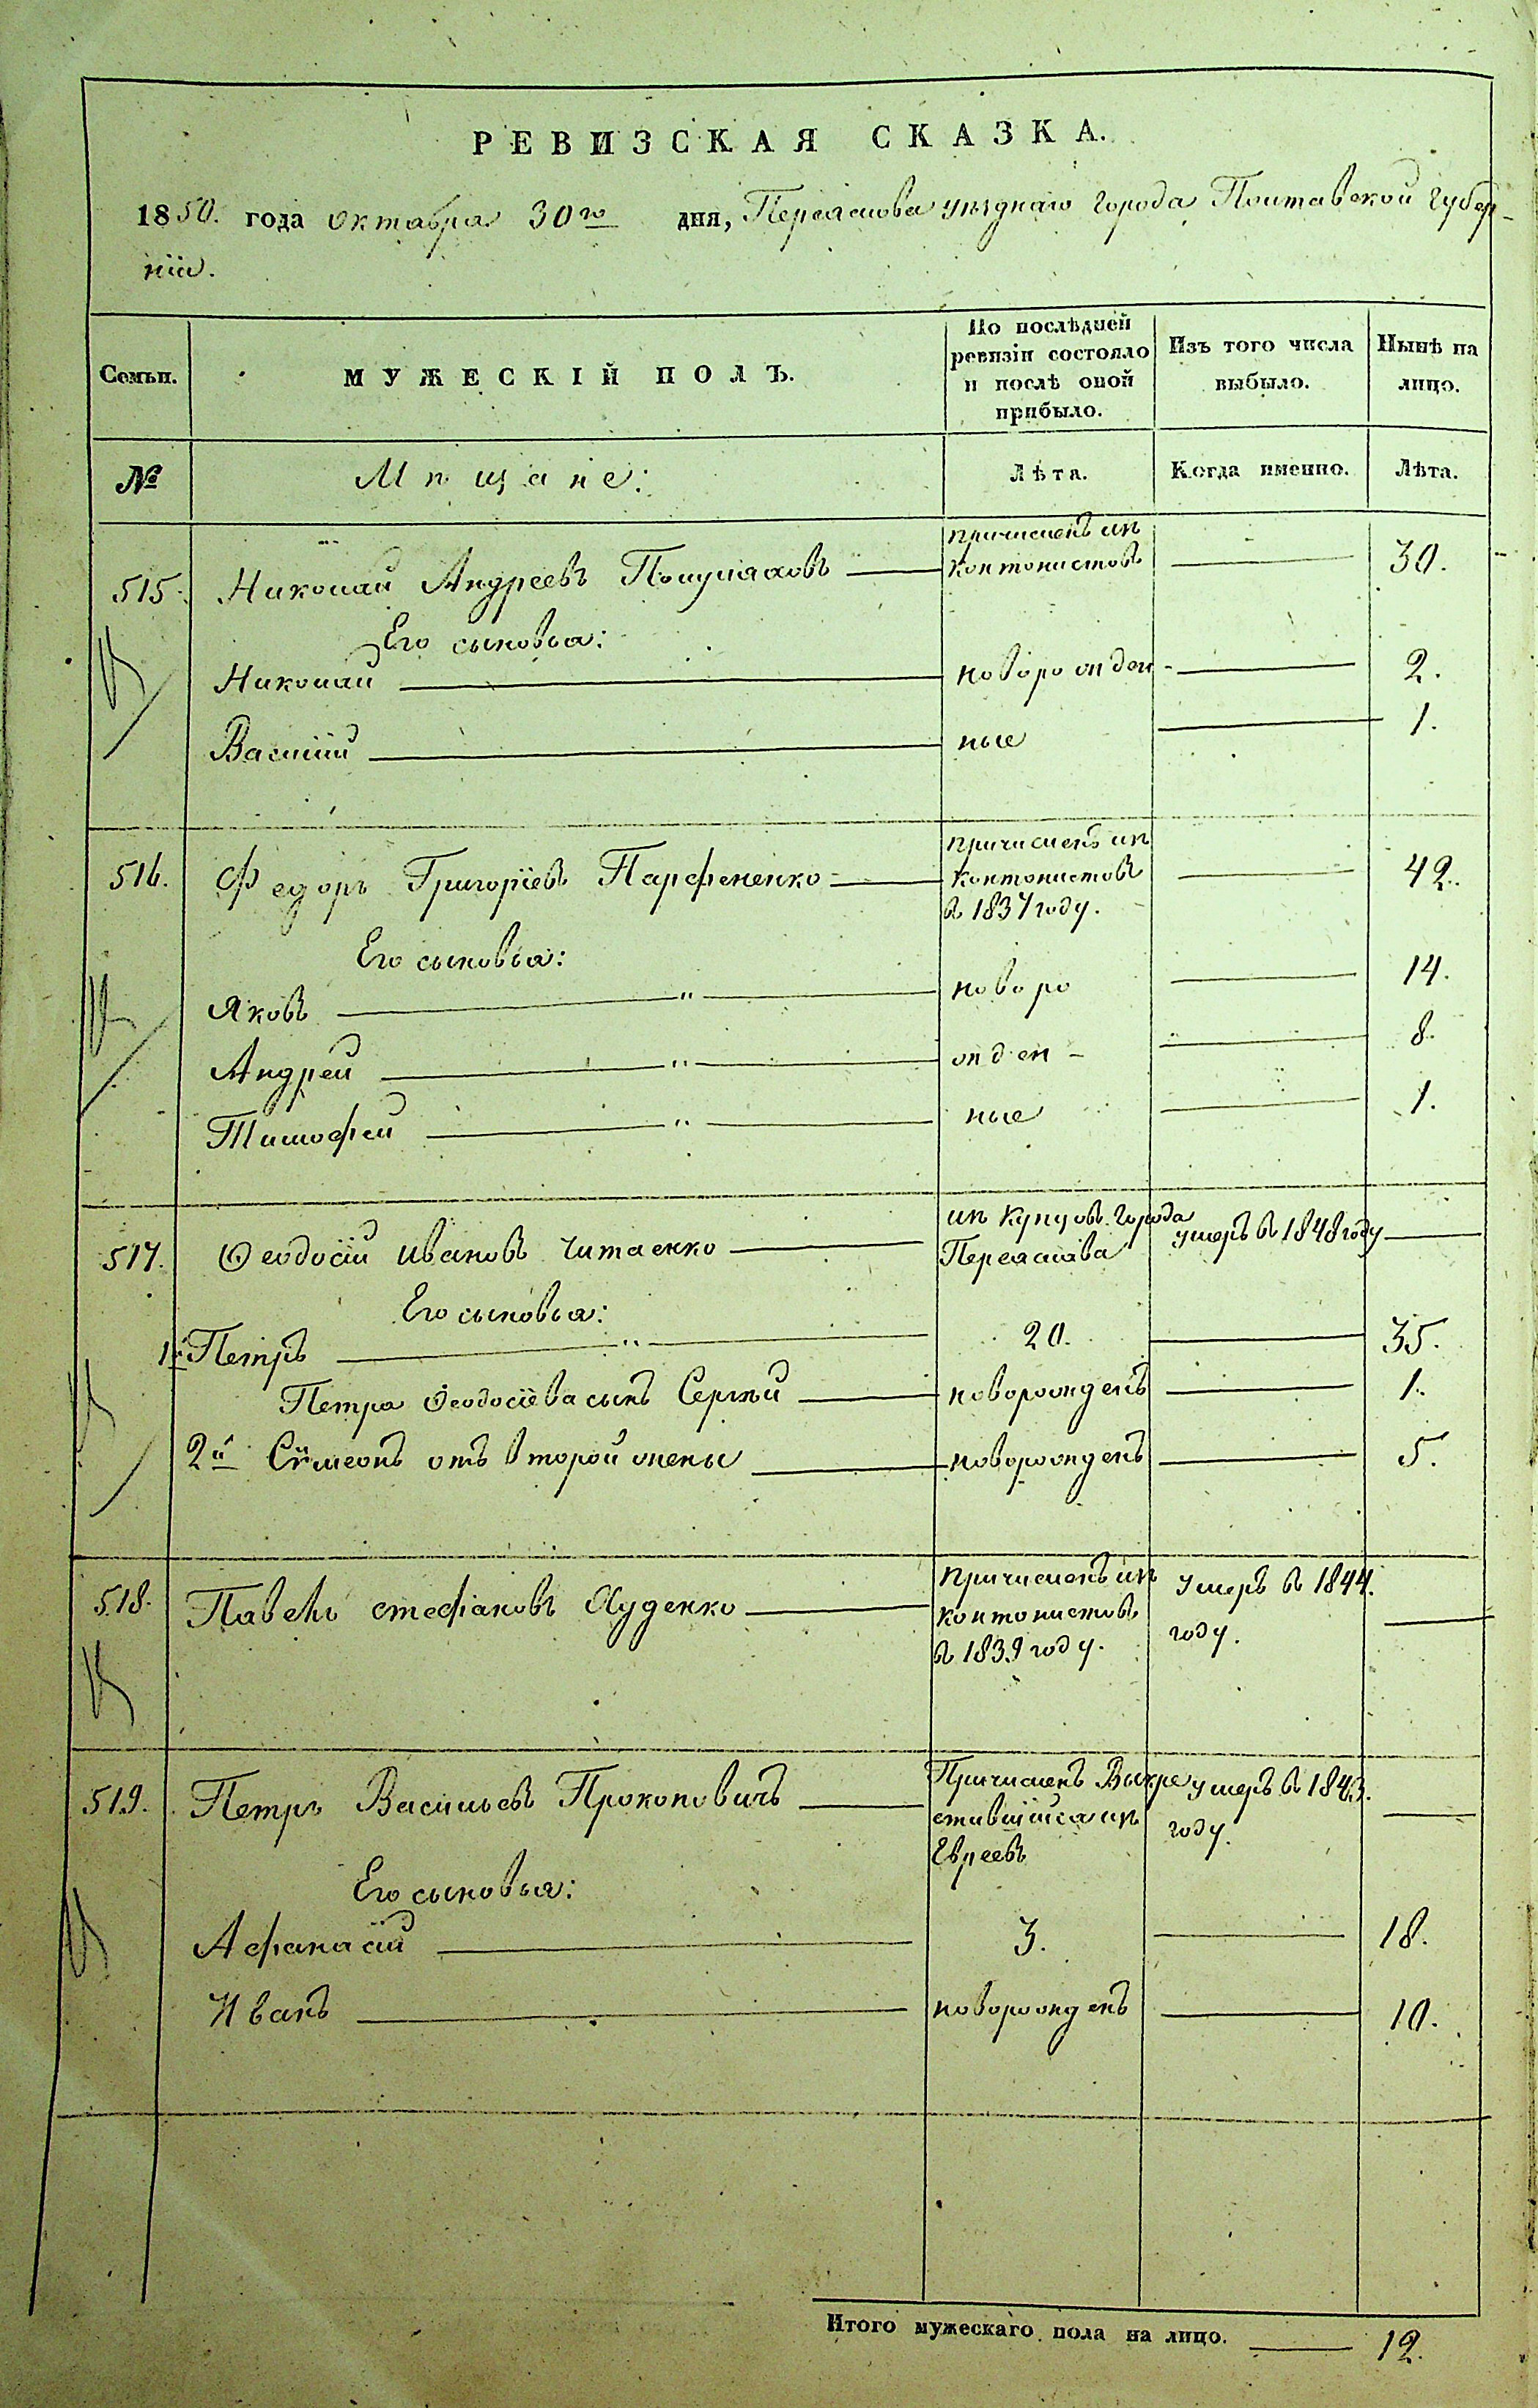 РЕВИЗСКАЯ СКАЗКА.
1850. года октября 30го дня, Переяслова уѣзднаго города Полтавской губер-
ніи.
Семьи.
МУЖЕСКІЙ ПОЛЪ.
По послѣдней ревизіи состояло и послѣ оной прибыло.
Изъ того числа выбыло.
Нынѣ на лицо.
№
Мѣщане:
Лѣта.
Когда именно.
Лѣта.
515. Николай Андреевъ причисленъ изъ контонистовъ 30.
Его сыновья:
Николай новорожден- 2.
Василій ные 1.
516. Федоръ Григоріевъ Парфененко причисленъ изъ контонистовъ въ 1837 году. 42.
Его сыновья:
Яковъ " новоро 14.
Андрей " жден- 8.
Тимофей " ные 1.
517. Ѳеодосій Ивановъ Читаенко изъ купцовъ города Переяслава умеръ въ 1848 году
Его сыновья:
1й Петръ " 20. 35.
Петра Ѳеодосіева сынъ Сергѣй новорожденъ 1.
2й Сѵмеонъ отъ второй жены новорожденъ 5.
518. Павелъ Стефановъ причисленъ изъ контонистовъ въ 1839 году. умеръ въ 1844. году.
519. Петръ Васильевъ Прокоповичъ Причисленъ Выкрестившійся изъ Евреевъ умеръ въ 1843. году.
Его сыновья:
Афанасій 3. 18.
Иванъ новорожденъ 10.
Итого мужескаго пола на лицо. 12.